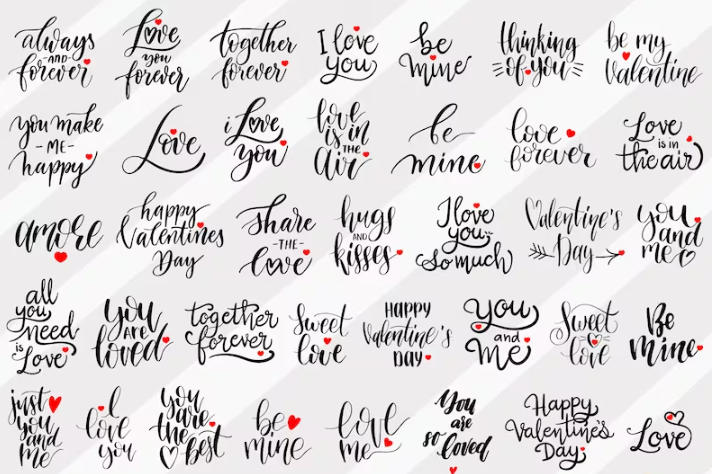 always
-AND-
forever
Love
you
forever
together
forever
I love
you
be
mine
thinking
of you
be my
Valentine
you make
-ME-
happy
Love
i Love
you
love
is in
THE
Air
be
mine
love
forever
Love
is in
the air
amore
happy
Valentines
Day
share
-THE-
love
hugs
AND
kisses
I love
you
so much
Valentine's
Day
you
and
me
all
you
need
is
Love
you
ARE
loved
together
forever
Sweet
love
HAPPY
Valentine's
DAY
you
and
me
Sweet
love
Be
mine
just
you
and
me
I
love
you
you
are
the
best
be
mine
love
me
You
are
so loved
Happy
Valentine's
Day
Love